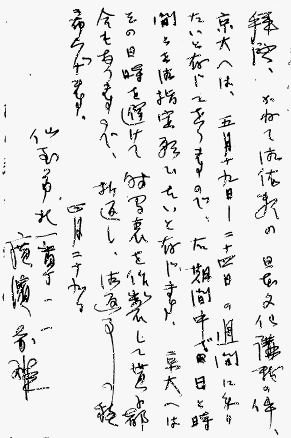 拝啓、かねて御依頼の日本文化講義の件、
京大へは、五月十九日―二十四日の週間に参り
たいと存じて居りますので、右期間中で日と時
間とを御指定願ひたいと存じます。京大へは
その日時を避けて時間表を作製して貰ふ都
合もありますので、折返し御返事
希ひ上げます。
四月二十九日
仙台市北一番丁